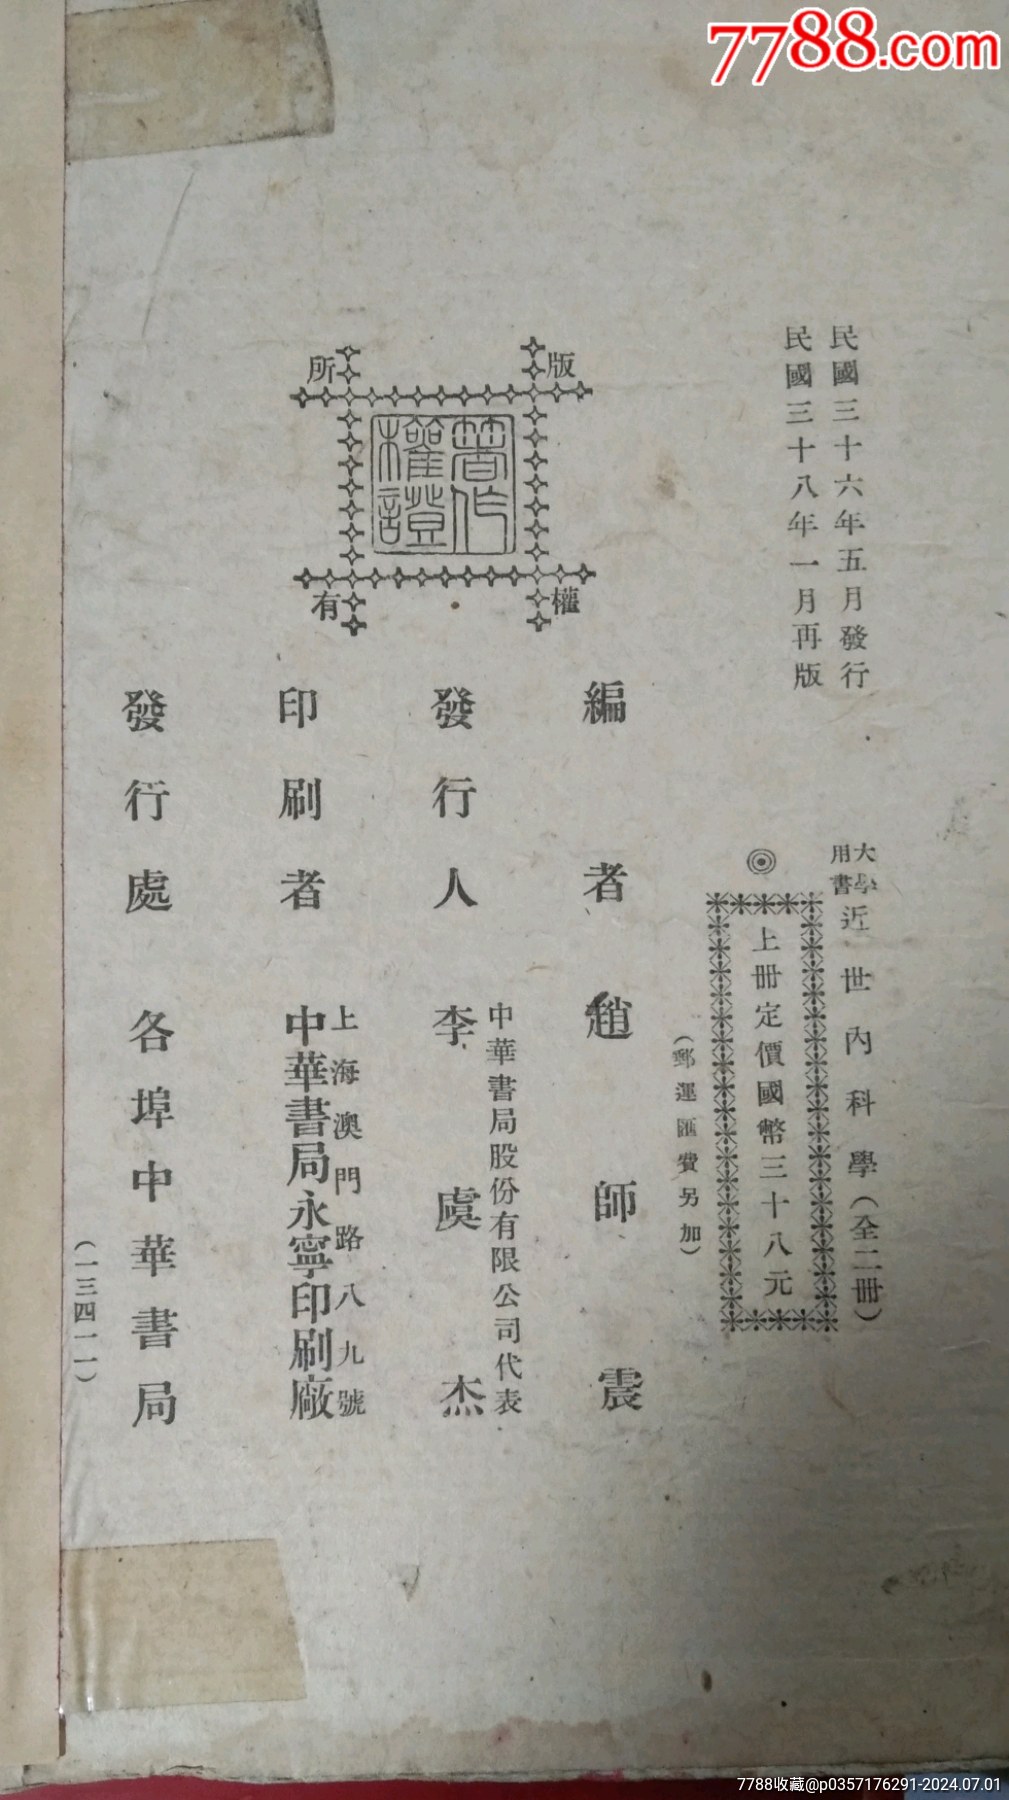 7788.com
民國三十六年五月發行
民國三十八年一月再版
大學用書 近世內科學(全二冊)
◎
上冊定價國幣三十八元
(郵運匯費另加)
版權所有
著作權證
編者 趙師震
中華書局股份有限公司代表
發行人 李虞杰
上海澳門路八九號
印刷者 中華書局永寧印刷廠
發行處 各埠中華書局
(一三四一一)
7788收藏@p0357176291-2024.07.01